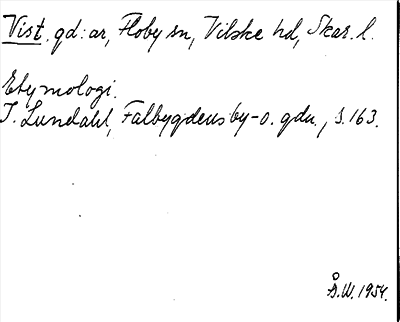 Vist. gd:ar, Floby sn, Vilske hd, Skar. l.
Etymologi.
I. Lundahl, Falbygdens by-o. gdn., s. 163.
Å.W. 1954.